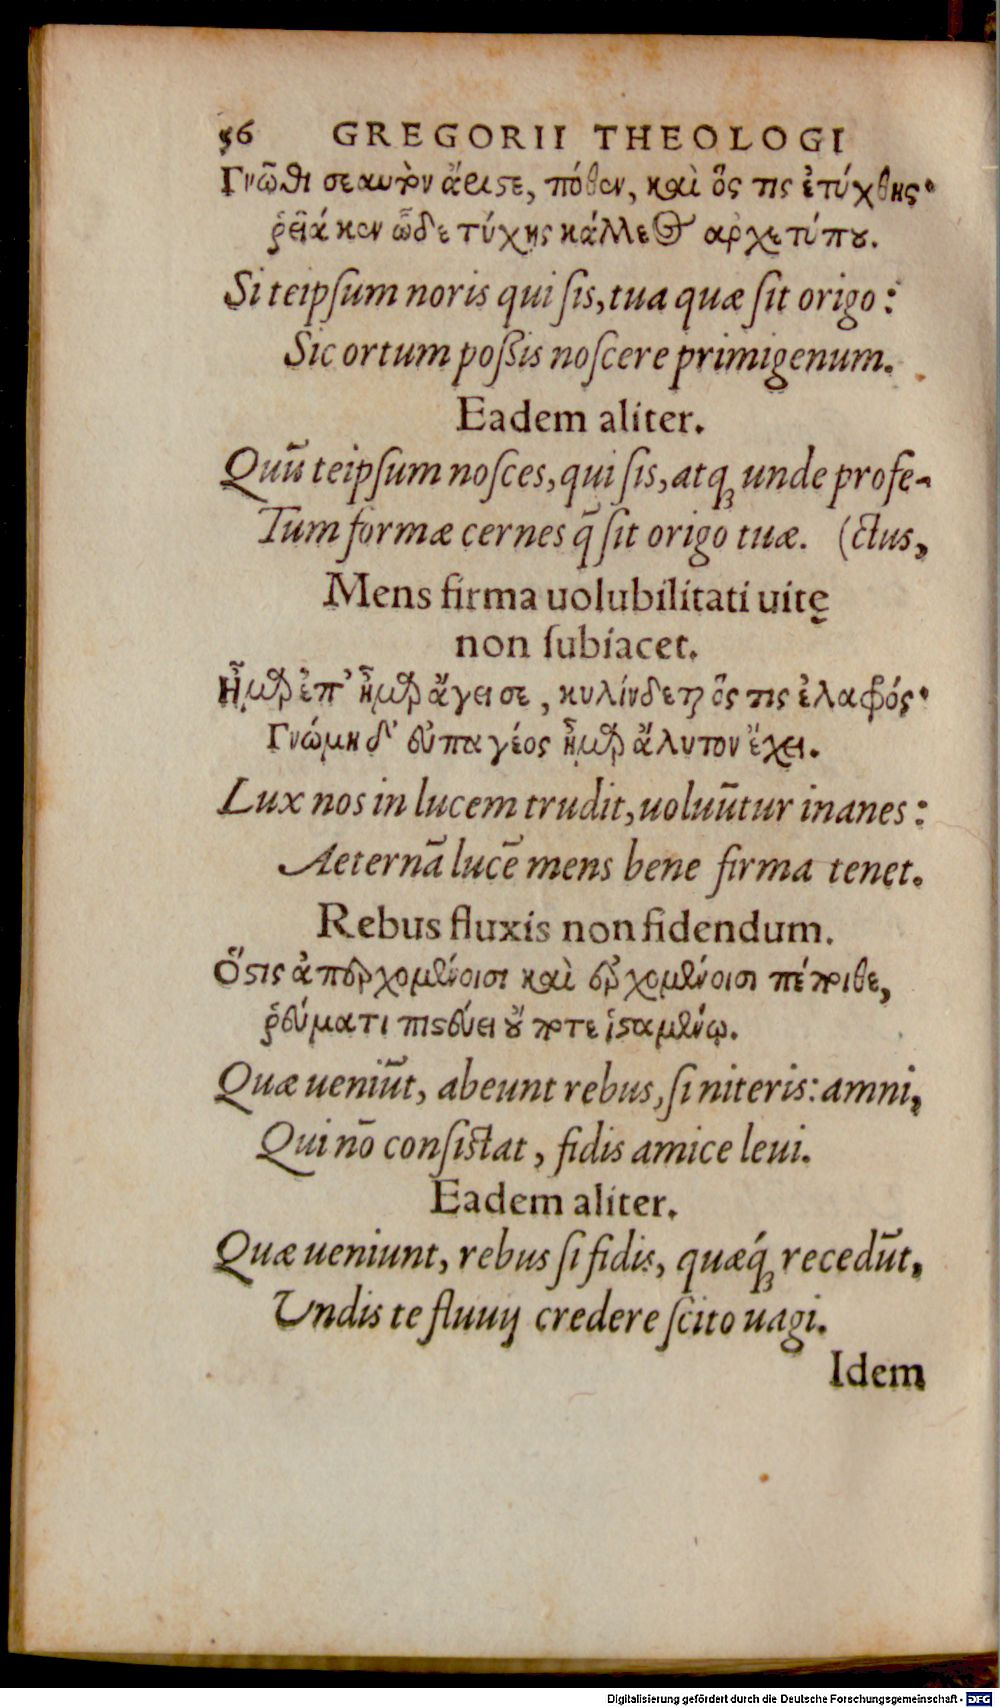 56 GREGORII THEOLOGI
Γνῶθι σεαυτὸν ἄριστε, πόθεν, καὶ ὅς τις ἐτύχθης·
ῥεῖά κεν ὧδε τύχης κάλλεος αρχετύπου.
Si teipſum noris qui ſis, tua quæ ſit origo:
Sic ortum poßis noſcere primigenum.
Eadem aliter.
Quū teipſum noſces, qui ſis, atq; unde profe-
Tum formæ cernes q̄ ſit origo tuæ. (ctus,
Mens firma uolubilitati uitę
non ſubiacet.
Ἦμαρ ἐπ' ἦμαρ ἄγει σε, κυλίνδεται ὅς τις ἐλαφρός·
Γνώμη δ' εὐπαγέος ἦμαρ ἄλυτον ἔχει.
Lux nos in lucem trudit, uoluūtur inanes:
Aeternā lucē mens bene firma tenet.
Rebus fluxis non fidendum.
Ὅστις ἀπερχομένοισι καὶ ἐρχομένοισι πέποιθε,
ῥεύματι πιστεύει οὔποτε ἱσταμένῳ.
Quæ ueniūt, abeunt rebus, ſi niteris: amni,
Qui nō conſiſtat, fidis amice leui.
Eadem aliter.
Quæ ueniunt, rebus ſi fidis, quæq́; recedūt,
Undis te fluuij credere ſcito uagi.
Idem
Digitalisierung gefördert durch die Deutsche Forschungsgemeinschaft - DFG